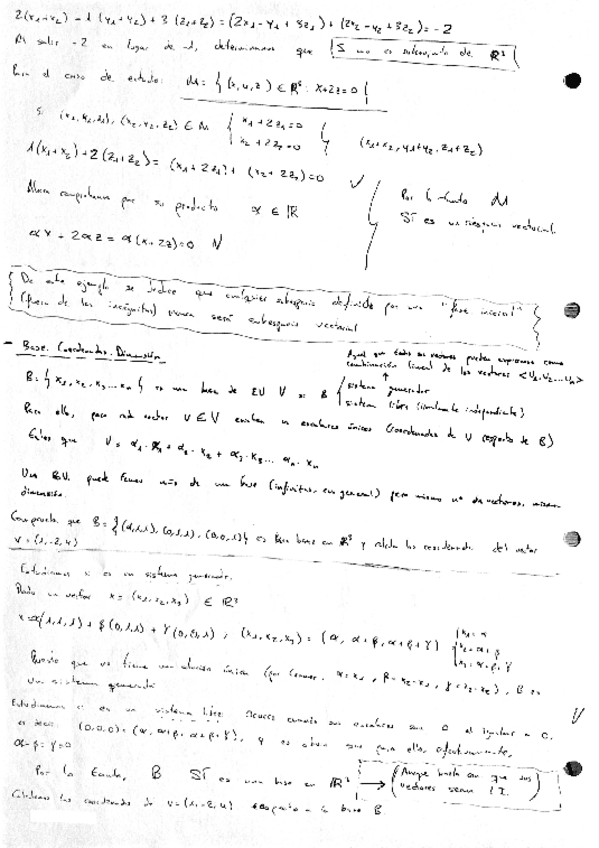 2(x₁+x₂) - 1 (y₁+y₂) + 3 (z₁+z₂) = (2x₁ - y₁ + 3z₁) + (2x₂ - y₂ + 3z₂) = -2
Al salir -2 en lugar de -1, determinamos que S no es subespacio de ℝ³
Para el caso de estudio: M = { (x, y, z) ∈ ℝ³ : x+2z=0 }
Si (x₁, y₁, z₁), (x₂, y₂, z₂) ∈ M { x₁ + 2z₁ = 0
x₂ + 2z₂ = 0 } (x₁+x₂, y₁+y₂, z₁+z₂)
1(x₁+x₂) + 2(z₁+z₂) = (x₁ + 2z₁) + (x₂ + 2z₂) = 0 ✓
Ahora comprobamos por su producto α ∈ ℝ
αx + 2αz = α(x+2z) = 0
Por lo tanto M
SÍ es un subespacio vectorial
De este ejemplo se deduce que cualquier subespacio definido por una "
(fuera de las incógnitas) nunca será subespacio vectorial
- Base. Coordenadas. Dimensión
Aquel que todos los vectores pueden expresarse como
combinación lineal de los vectores <U₁, U₂ ... Uₙ>
B = { x₁, x₂, x₃ ... xₙ } es una base de EV V si B { sistema generador
sistema libre (linealmente independiente)
Para ello, para cada vector v ∈ V existen unos escalares únicos (coordenadas de v respecto de B)
v = α₁·x₁ + α₂·x₂ + α₃·x₃ ... αₙ·xₙ
Un EV. puede tener más de una base (infinitas, en general) pero mismo nº de vectores, misma
dimensión.
Comprueba que B = {(1,1,1), (0,1,1), (0,0,1)} es base en ℝ³ y calcula las coordenadas del vector
v = (1, -2, 4)
Estudiamos si es un sistema generador.
Dado un vector x = (x₁, x₂, x₃) ∈ ℝ³
x = α(1,1,1) + β(0,1,1) + γ(0,0,1) ; (x₁, x₂, x₃) = (α, α+β, α+β+γ) { x₁ = α
x₂ = α+β
x₃ = α+β+γ
que tiene una solución única (α = x₁, β = x₂-x₁, γ = x₃-x₂), B es
un sistema generador ✓
Estudiamos si es un sistema libre. cuando sus escalares son 0 al igualar a 0,
es decir: (0,0,0) = (α, α+β, α+β+γ), y es obvio que para ello, efectivamente,
α=β=γ=0
Por lo tanto, B SÍ es una base en ℝ³ → (Aunque basta con que sus
vectores sean L.I.)
Calculamos las coordenadas de v = (1,-2,4) respecto a la base B.